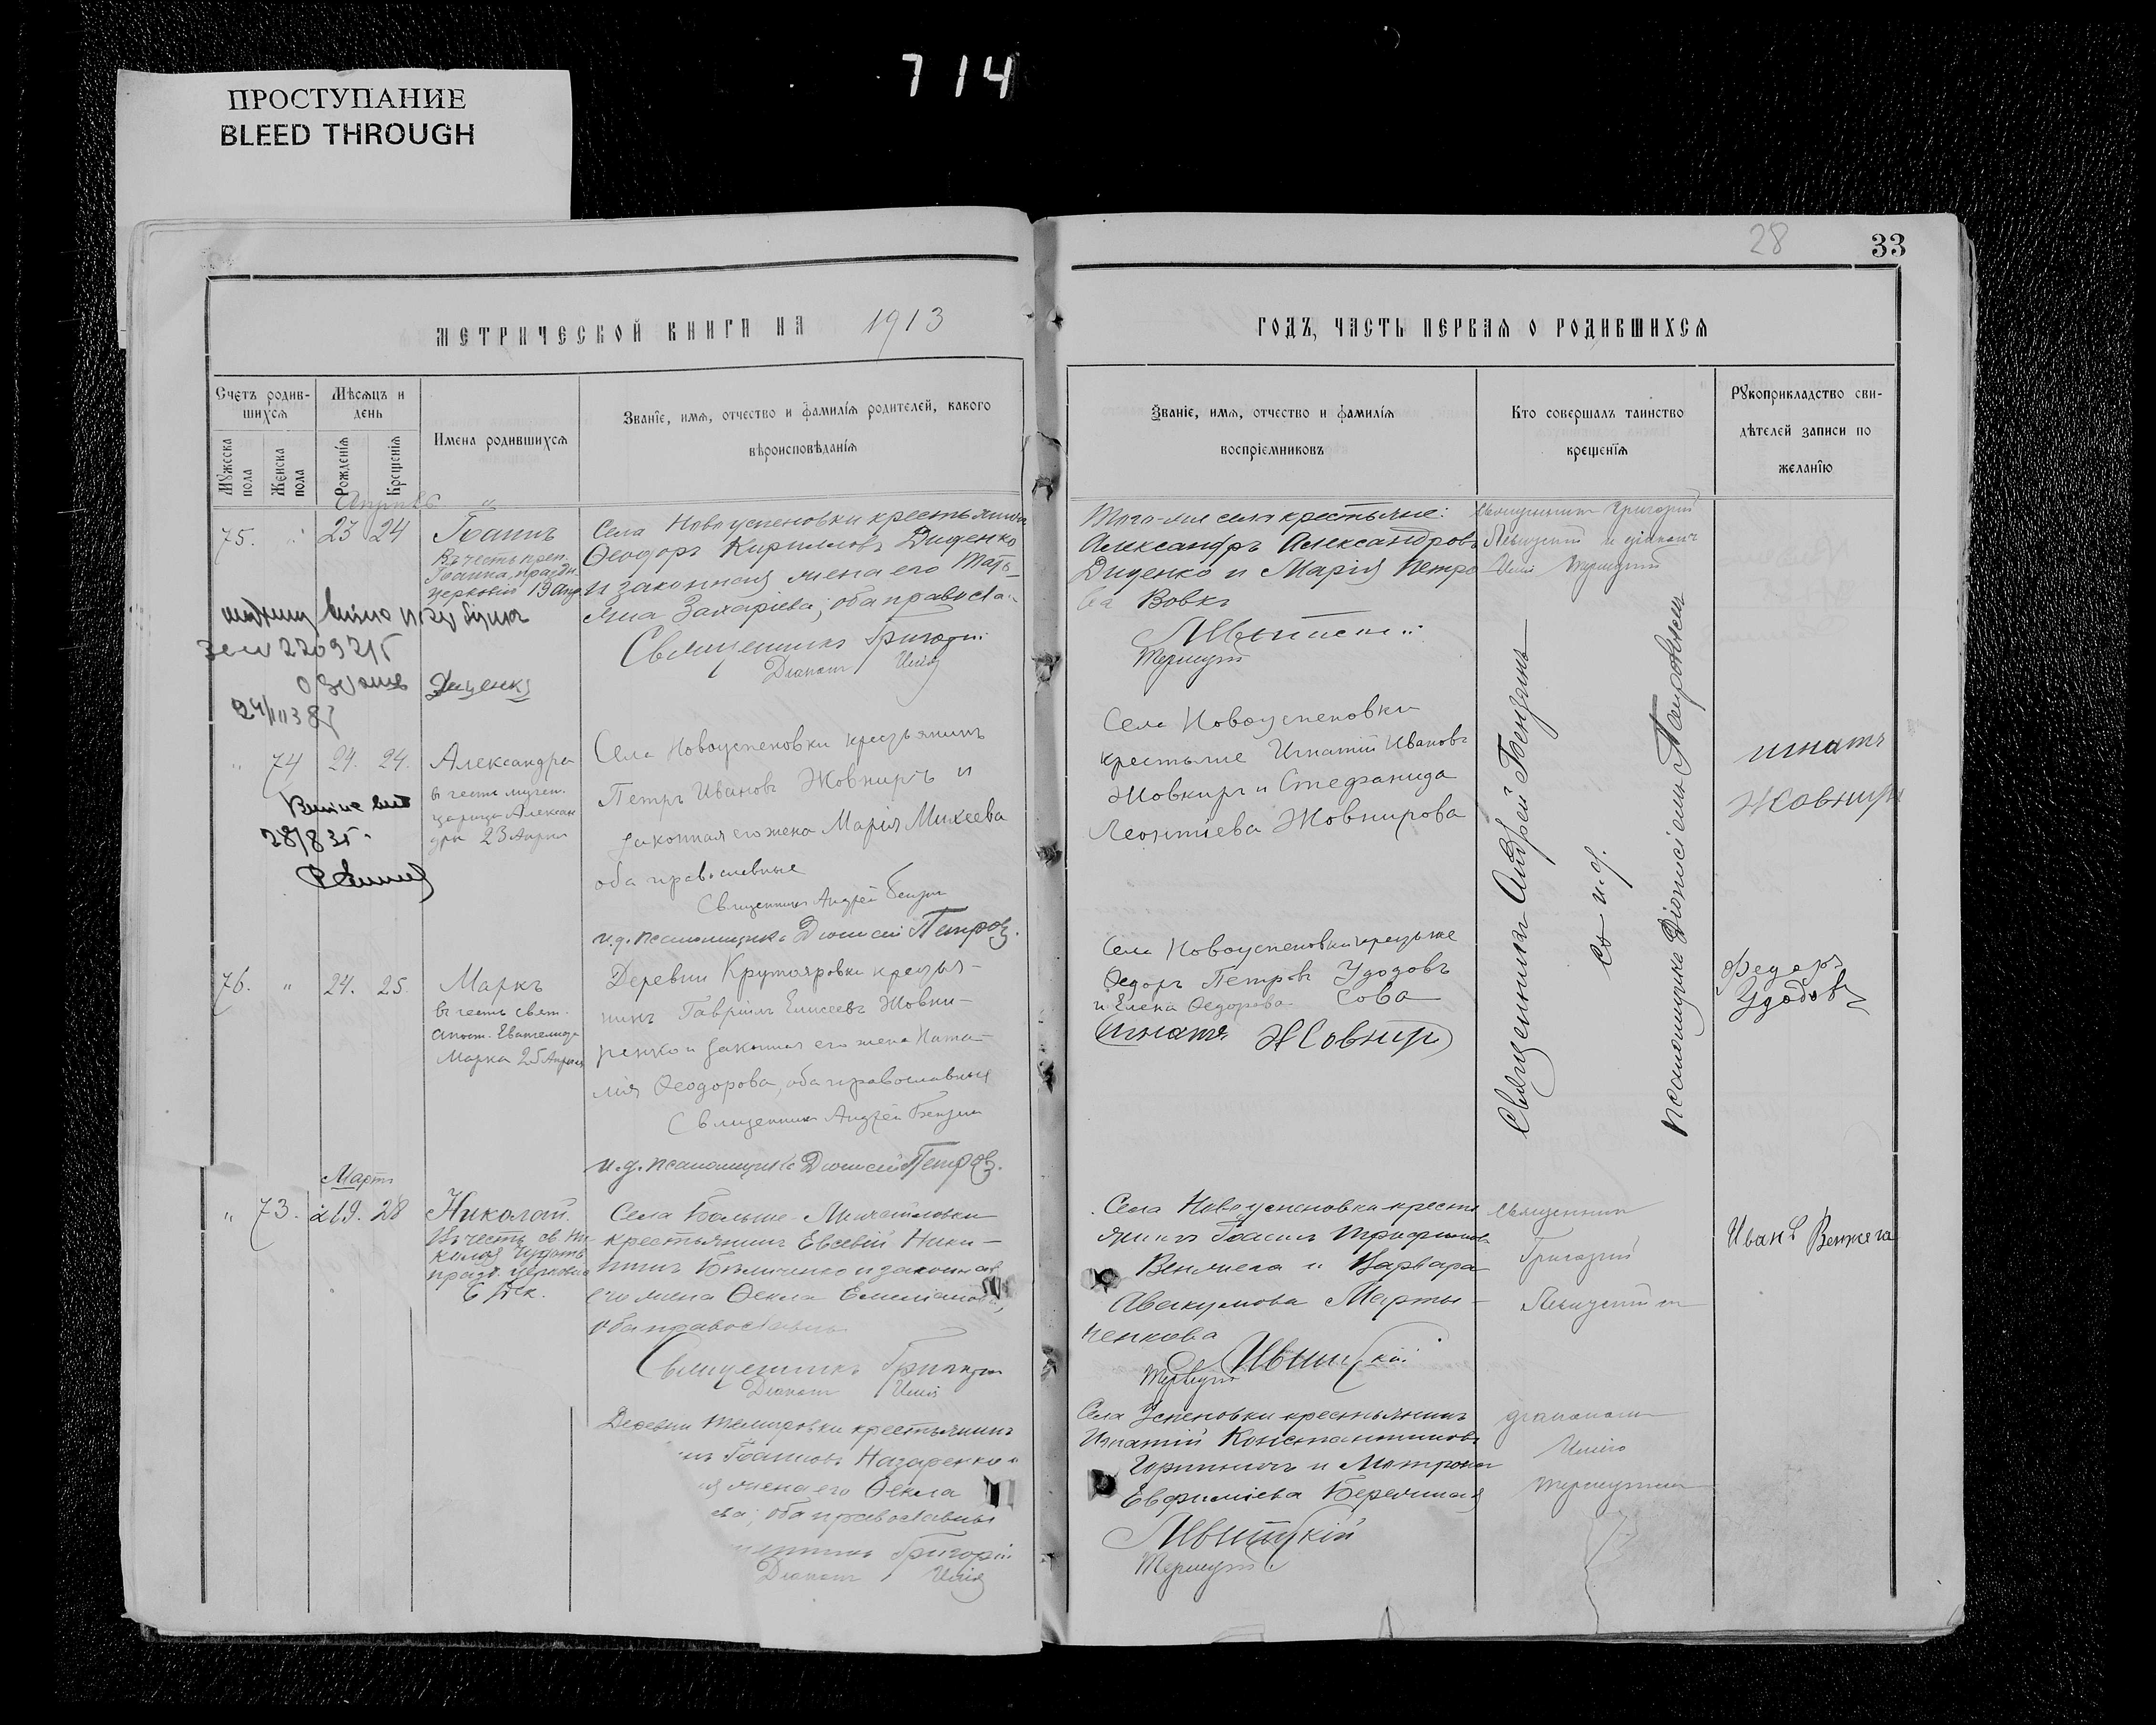 714
ПРОСТУПАНИЕ
BLEED THROUGH
28
33
МЕТРИЧЕСКОЙ КНИГИ НА 1913
ГОДЪ, ЧАСТЬ ПЕРВАЯ О РОДИВШИХСЯ
Счетъ родив-
шихся
Мужеска пола
Женска пола
Мѣсяцъ и
день
Рожденія
Крещенія
Имена родившихся
Званіе, имя, отчество и фамилія родителей, какого
вѣроисповѣданія
Званіе, имя, отчество и фамилія
воспріемниковъ
Кто совершалъ таинство
крещенія
Рукоприкладство сви-
дѣтелей записи по
желанію
75. 23 24 Іоаннъ
Въ честь преп.
Іоанна, праздн.
церковію 19 Апр.
Села Новоуспеновки крестьянинъ
Ѳеодоръ Кирилловъ Диденко
и законная жена его Тать-
яна Захаріева; оба правосла-
Священникъ Григорій
Діаконъ Илія
Того-же села крестьяне:
Александръ Александровъ
Диденко и Марія Петро
ва Вовкъ
Священникъ Григорій
и діаконъ
Илія
74 24. 24. Александра
въ честь мучен.
царицы Алексан
дры 23 Апрѣля
28/8 35
Села Новоуспеновки крестьянинъ
Петръ Ивановъ Жовниръ и
законная его жена Марія Михеева
оба православные
Священникъ Андрей
и.д. псаломщика Діонисій
Села Новоуспеновки
крестьяне Игнатій Ивановъ
Жовниръ и Стефанида
Леонтіева Жовнирова
Игнатъ
Жовниръ
Священникъ Андрей
съ и.д.
псаломщика Діонисіемъ
76. " 24. 25. Маркъ
въ честь свят.
апост. Евангелиста
Марка 25 Апрѣля
Деревни Крутояровки крестья-
нинъ Гавріилъ Елисеевъ Жовни-
ренко и законная его жена Ната-
лія Ѳеодорова, оба православные
Священникъ Андрей
и.д. псаломщика Діонисій
Села Новоуспеновки крестьяне
Ѳедоръ Петровъ Удодовъ
и Елена Ѳедорова Сова
Игнатъ Жовниръ
Федоръ
Удодовъ
Мартъ
" 73. 19. 28 Николай.
Въ честь св. Ни-
колая Чудотв.
празд. церковію
6 Дек.
Села Больше-Михайловки
крестьянинъ Евсевій Ники-
его жена Ѳекла Емеліанова,
оба православны
Священникъ Григорій
Діаконъ Илія
Села Новоуспеновки кресть
янинъ Іоаннъ Трифоновъ
Венжега и Варвара
Авакумова Марты-
ненкова
Священникъ
Григорій
Иванъ Венжега
крестьянинъ
Іоанновъ Назаренко и
жена его Ѳекла
ева; оба православны
Григорій
Діаконъ Илія
Села Успеновки крестьянинъ
Игнатій Константиновъ
и Матрона
Евфиміева
діакономъ